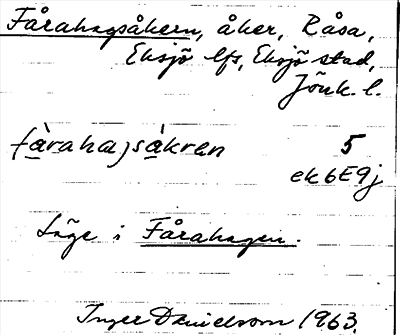 Fårahagsåkern, åker, Råsa,
Eksjö lfs, Eksjö stad,
Jönk. l.
(åraha)såkren 5
ek6E9j
Läge i Fårahagen.
Inger Danielsson 1963.